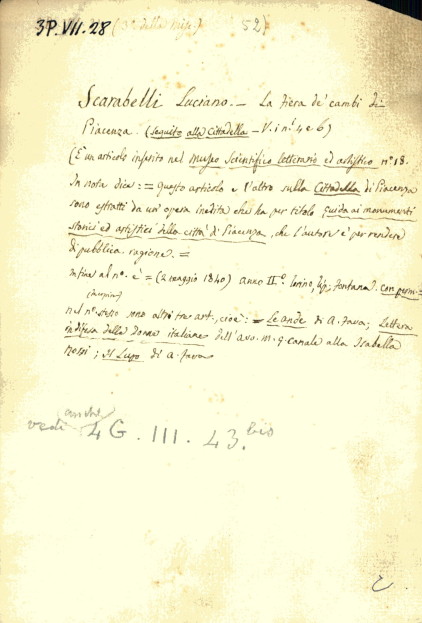 3P. VII. 28 (3ª della Misc.) 52)
Scarabelli Luciano. — La fiera de' cambi di
Piacenza. (seguito alla Cittadella — V. i nⁱ 4 e 6)
(È un articolo inserito nel museo Scientifico letterario ed artistico nº 18.
In nota dice: = questo articolo e l'altro sulla Cittadella di Piacenza
sono estratti da un' opera inedita che ha per titolo Guida ai monumenti
storici ed artistici della città di Piacenza, che l'autore è per rendere
di pubblica ragione. =
In fine al nº. è = (2 maggio 1840) anno IIº. Torino, tip. Fontana con perm =
nel nº. stesso sono altri tre art., cioè: = Le ande di A. Fava; Lettera
in difesa delle Donne italiane dell'avv. M. G. Canale alla Isabella
Rossi; Il Lupo di A. Fava
vedi anche 4 G. III. 43. bis